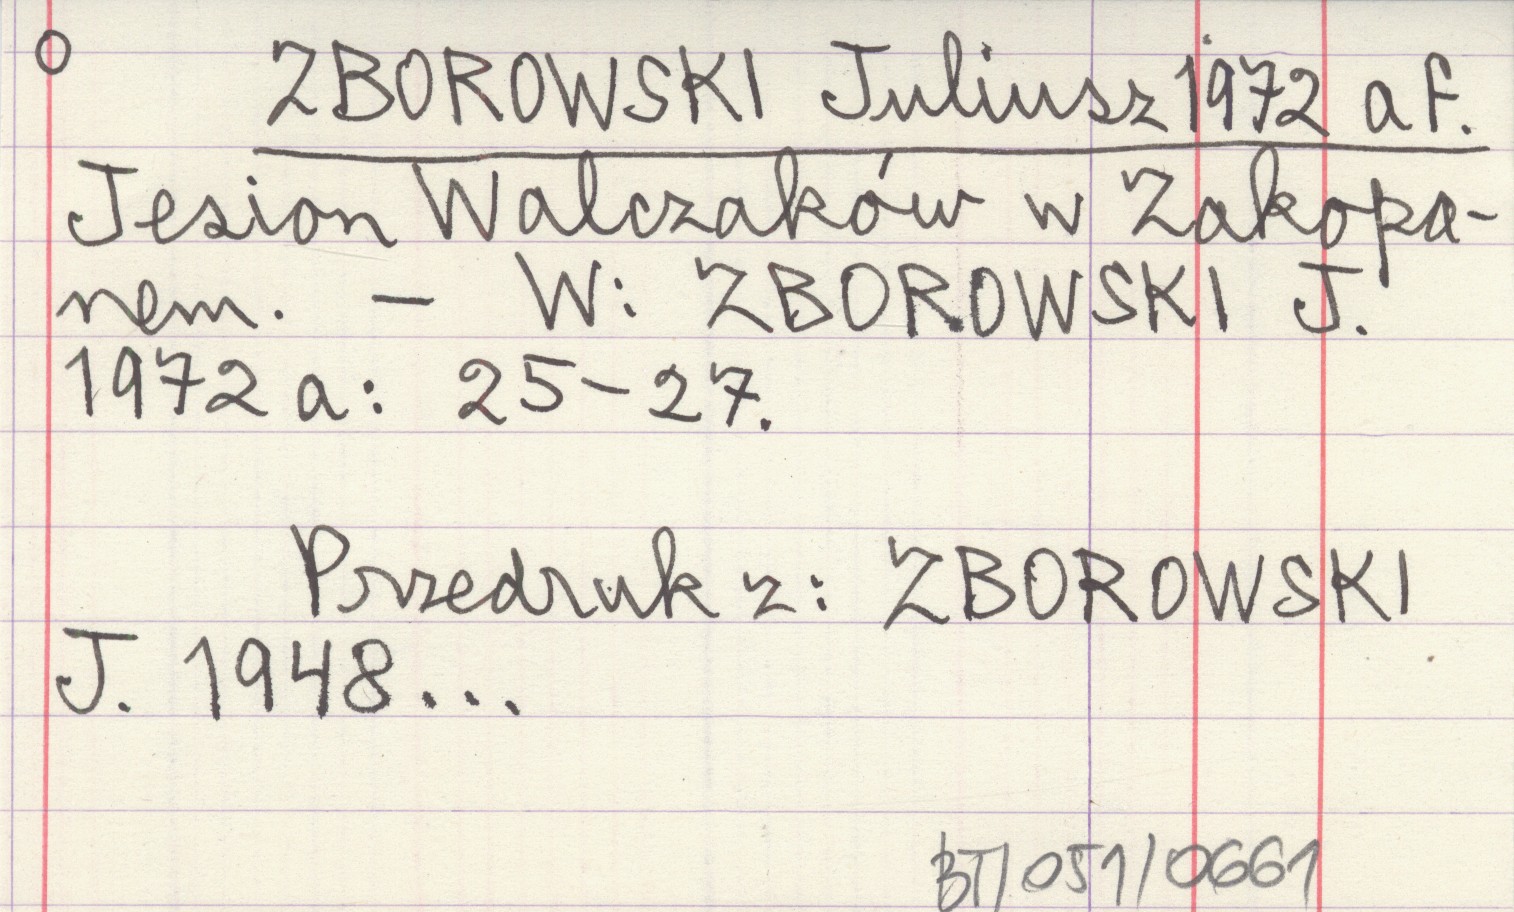 O ZBOROWSKI Juliusz 1972 a F.
Jesion Walczaków w Zakopa-
nem. – W: ZBOROWSKI J.
1972 a: 25–27.
Przedruk z: ZBOROWSKI
J. 1948...
BT/051/0661